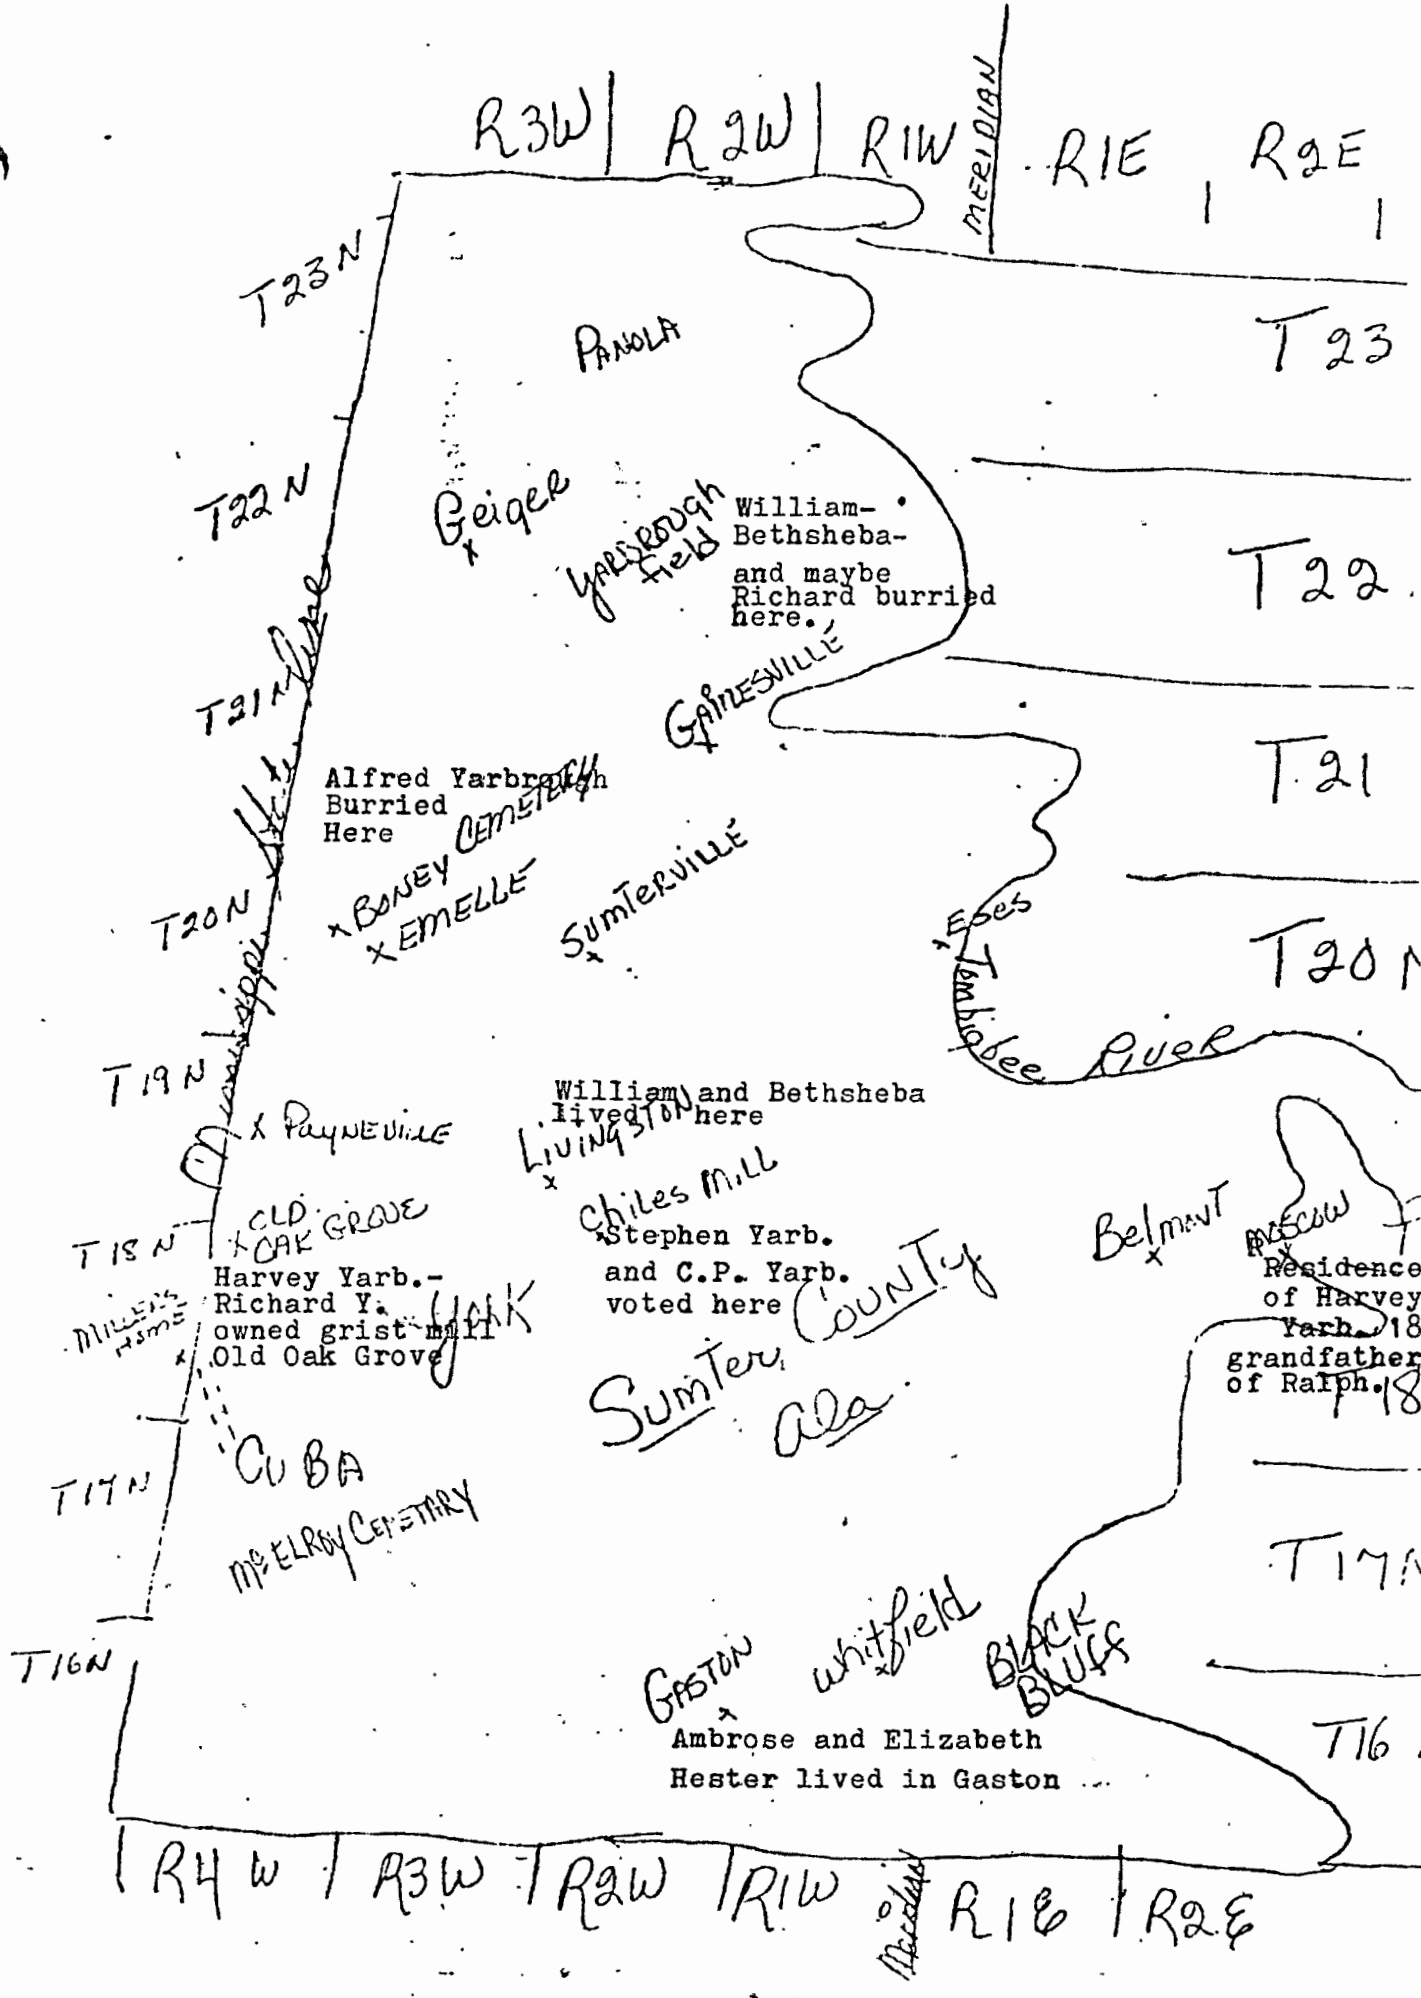 R3W R2W R1W MERIDIAN R1E R2E
T23N
T 23
PANOLA
T22N
Geiger
YARBROUGH
field
William-
Bethsheba-
and maybe
Richard burried
here.
T 22
T21N
GAINESVILLE
T 21
Alfred Yarbrough
Burried
Here
BONEY CEMETERY
EMELLE
SUMTERVILLE
T20N
Mississippi
line
Tombigbee River
T20 N
T19N
PayNEVillE
William and Bethsheba
lived here
LIVINGSTON
Chiles Mill
Stephen Yarb.
and C.P. Yarb.
voted here
Belmont
MOSCOW
Residence
of Harvey
Yarb. 18
grandfather
of Ralph.
T 18
T18N
OLD
OAK GROVE
Harvey Yarb.-
Richard Y.
owned grist mill
Old Oak Grove
York
MILLERS
HOME
Sumter County
Ala.
CUBA
T17N
McELROY CEMETARY
T17N
T16N
GASTON
Whitfield
BLACK
BLUFF
T16
Ambrose and Elizabeth
Hester lived in Gaston
R4W R3W R2W R1W Meridian R1E R2E